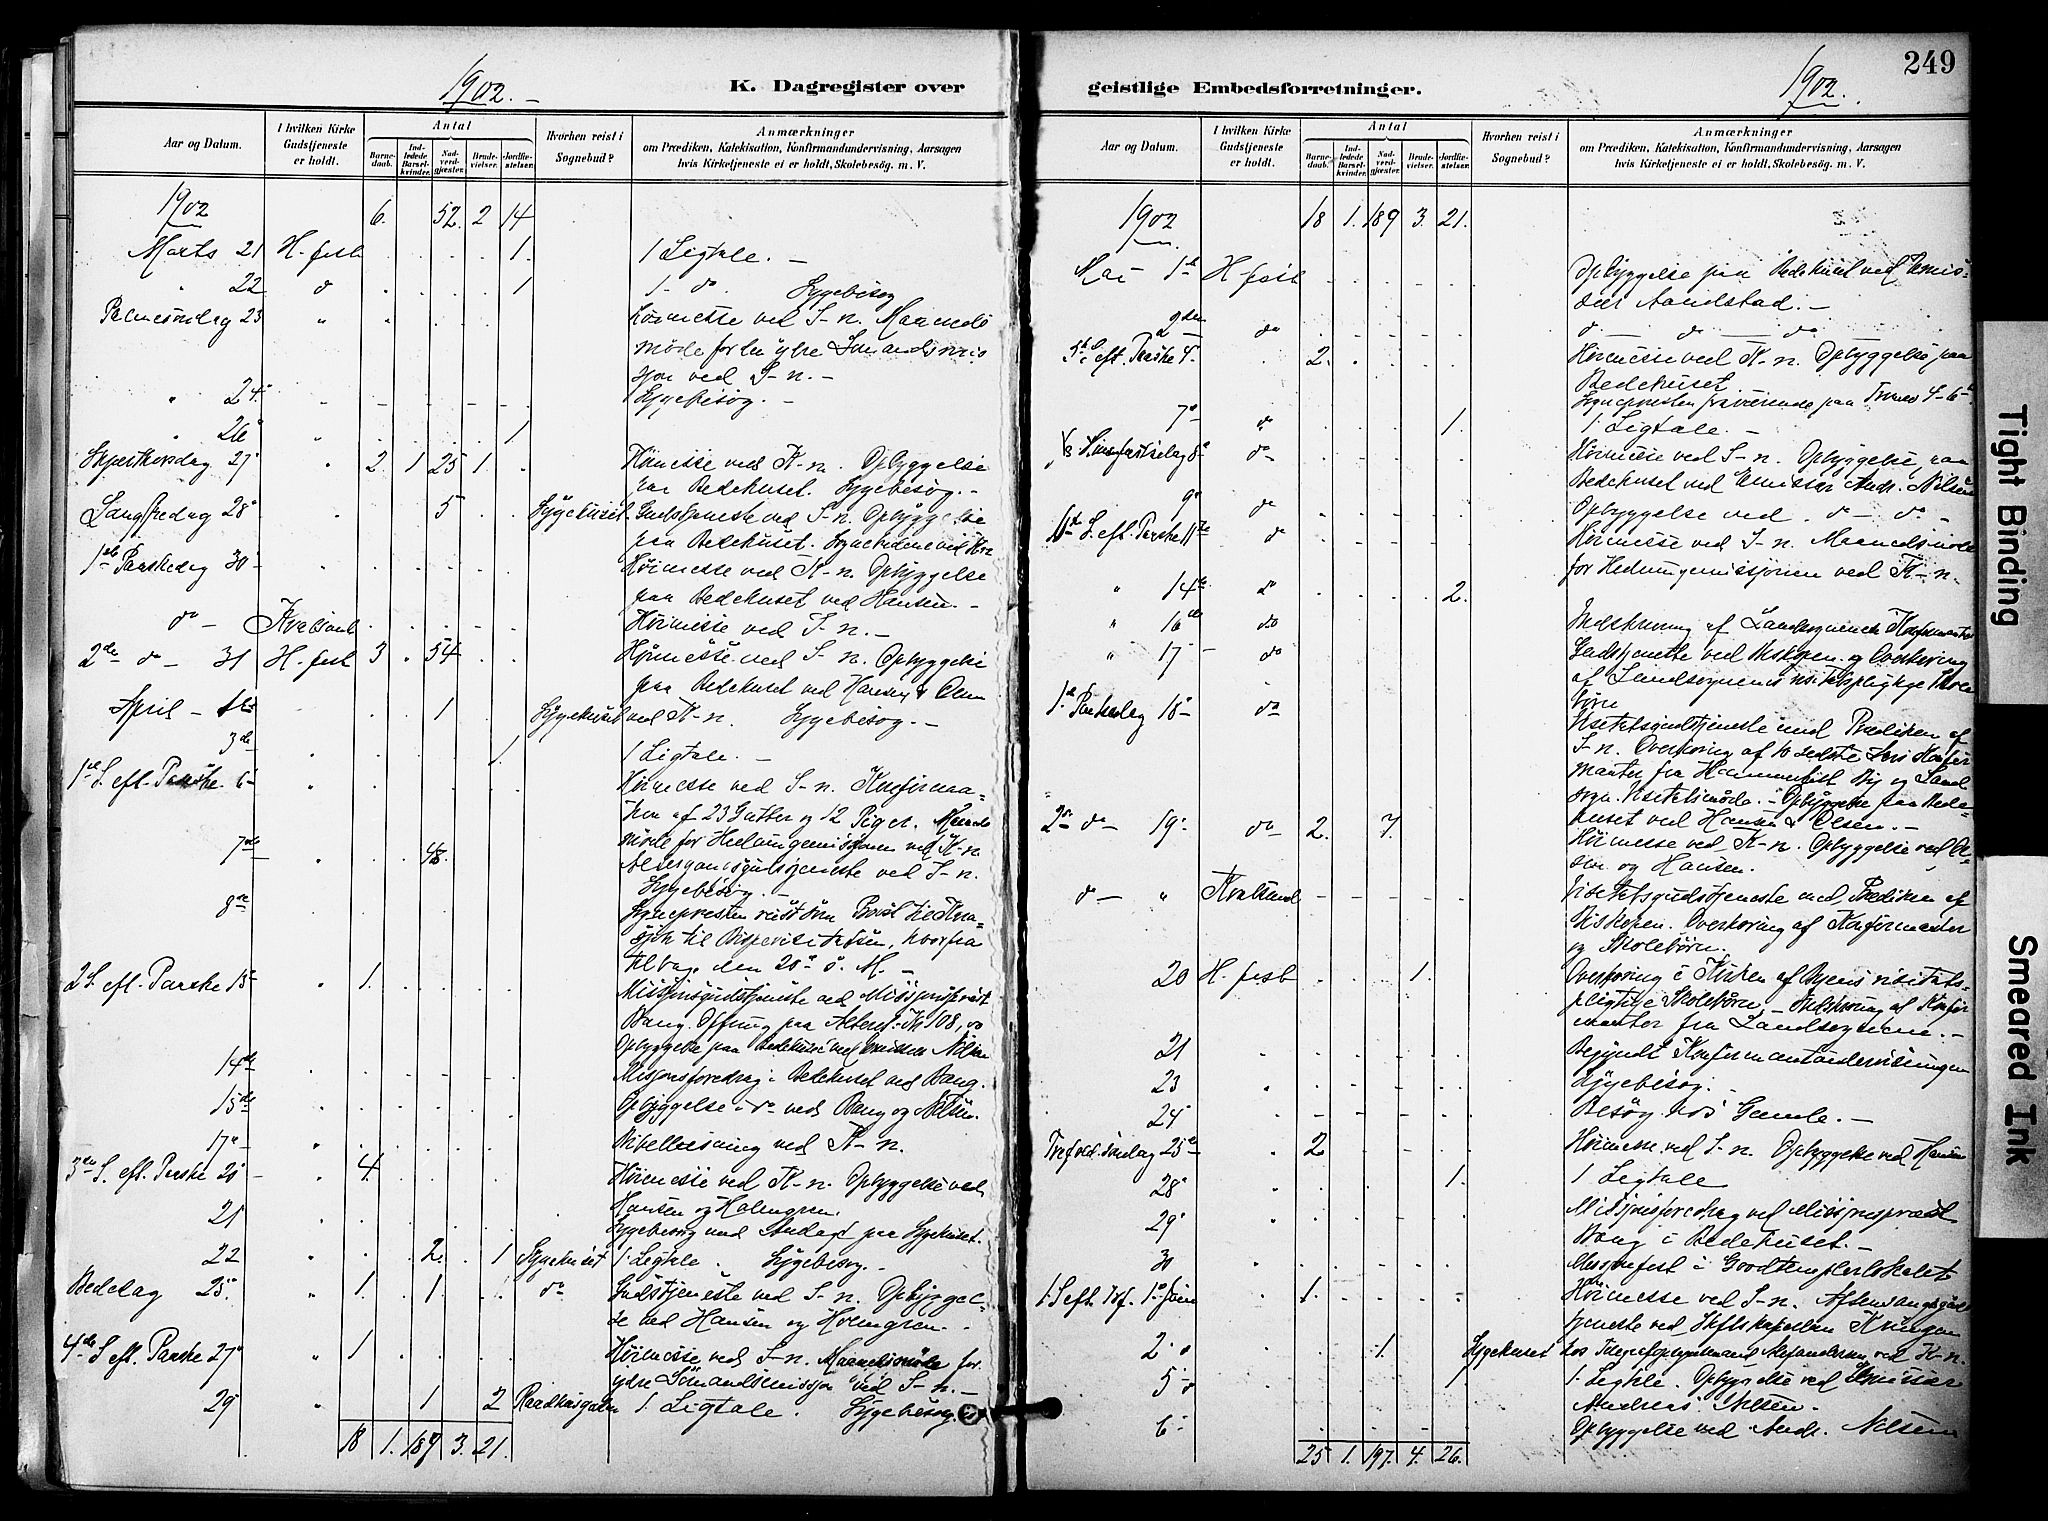 1902.
K. Dagregister over
Aar og Datum.
I hvilken Kirke Gudstjeneste er holdt.
Antal
Barnedaab.
Indledede Barselkvinder.
Nadverdgjæster.
Brudevielser.
Jordfæstelser.
Hvorhen reist i Sognebud?
Anmærkninger
om Prædiken, Katekisation, Konfirmandundervisning, Aarsagen
hvis Kirketjeneste ei er holdt, Skolebesøg. m. V.
1902 6. 52. 2 14
Marts 21 H.fest 1. 1 Ligtale. —
" 22 do 1 1. do. Sygebesøg
Palmesøndag 23 " Høimesse ved S-n. Maaneds
møde for den ydre Sømandsmis
sjon ved S-n. —
" 24 Sygebesøg. —
" 26 " 1
Skjærthorsdag 27 " 2. 1 25 1. Høimesse ved K-n. Opbyggelse
paa Bedehuset. Sygebesøg. —
Langfredag 28 " 5 Sygehuset. Gudstjeneste ved S-n. Opbyggelse
paa Bedehuset.
1ste Paaskedag 30 " Høimesse ved K-n. Opbyggelse
paa Bedehuset ved Hansen. —
do — Kvalsund Høimesse ved S-n. —
2den do — 31 H.fest 3 54 Høimesse ved S-n. Opbyggelse
paa Bedehuset ved Hansen & Olsen
April 1ste 1 Sygehuset ved K-n. Sygebesøg. —
3die 1 1 Ligtale. —
1ste S. eft. Paaske 6 " Høimesse ved S-n. Konfirma-
tion af 23 Gutter og 12 Piger. Maaneds
møde for Hedningemissjonen ved K-n
7de " 48. Altergangsgudstjeneste ved S-n.
Sygebesøg. —
8de Sognepresten reist som
til Bispevisitatsen, hvorfra
tilbage den 20de d. M. —
2 S. eft. Paaske 13 " 1. Missjonsgudstjeneste ved Missjonsprest
Bang. Offring paa Alteret Kr 108,00
Opbyggelse paa Bedehuset ved Emissær Nilsen
14de " Missjonsforedrag i Bedehuset ved Bang.
15de " Opbyggelse i do ved Bang og Nilsen.
17de " Bibellæsning ved K-n.
3die S. eft. Paaske 20 " 4. Høimesse ved K-n. Opbyggelse ved
Hansen og Holmgren.
21 " Sygebesøg med Andagt paa Sygehuset.
22 " 2. 1 Sygehuset 1 Ligtale. Sygebesøg. —
Bededag 25 " 1. 1. do Gudstjeneste ved S-n. Opbyggel-
se ved Hansen og Holmgren. —
4de S. eft. Paaske 27 " 1 Høimesse ved S-n. Maanedsmøde for
ydre Sømandsmissjon ved S-n. —
29 " 1 2 Raadhusgaden 1. Ligtale. Sygebesøg.
18 1. 189 3. 21.
249
1902.
geistlige Embedsforretninger.
Aar og Datum.
I hvilken Kirke Gudstjeneste er holdt.
Antal
Barnedaab.
Indledede Barselkvinder.
Nadverdgjæster.
Brudevielser.
Jordfæstelser.
Hvorhen reist i Sognebud?
Anmærkninger
om Prædiken, Katekisation, Konfirmandundervisning, Aarsagen
hvis Kirketjeneste ei er holdt, Skolebesøg. m. V.
1902 18 1. 189 3. 21.
Mai 1ste H.fest Opbyggelse paa Bedehuset ved Emis-
sær Aandstad. —
2den do do — do — do
5te S. eft. Paaske 4. 2. Høimesse ved K-n. Opbyggelse paa
Bedehuset.
Sognepresten fraværende paa 4-6
7de do 1. 1 Ligtale. —
Kr. Himmelfartsdag 8de do Høimesse ved S-n. Opbyggelse paa
Bedehuset ved Emissær Andr. Nilsen
9de do Opbyggelse ved do — do —
6te S. eft. Paaske 11te do Høimesse ved S-n. Maanedsmøde
for Hedningemissjonen ved K-n.
" 14de do 2.
" 16de do Indskrivning af Landsognenes Konfirmanter
" 17 do Gudstjeneste ved Biskopen og Overhøring
af Landsognenes visitatspligtige Skole
børn
1ste Pinsedag 18 do Visitatsgudstjeneste med Prædiken af
S-n. Overhøring af 10 sidste Aars Konfir
manter fra Hammerfest By og Land
sogn. Visitatsmøde. — Opbyggelse paa Bede-
huset ved Hansen & Olsen. —
2den do — 19 do 2. 7. Høimesse ved K-n. Opbyggelse ved Ol-
sen og Hansen.
do — " Kvalsund Visitatsgudstjeneste med Prædiken af
Biskopen. Overhøring af Konfirmanter
og Skolebørn.
20 H.fest 1. Overhøring i Kirken af Byens visitats-
pligtige Skolebørn. — Indskrivning af Konfir
manter fra Landsognene. —
21 Begyndt Konfirmantundervisningen
23 " Sygebesøg. —
24 " Besøg hos Gamle. —
Trefold. Søndag 25de " 2 Høimesse ved S-n. Opbyggelse ved Hansen
28 " 1. 1 Ligtale
29 " Missjonsforedrag ved Missjonsprest
Bang i Bedehuset. —
30 " Missjonsfest i Goodtemplerlokalet
1 S. eft. Tref. 1ste Juni " 1. Høimesse ved S-n. Aftensangsguds
tjeneste ved
2. " 1. Sygehuset hos ved K-n.
5 1 1. Ligtale. Opbyggelse ved Emissær
Andreas Nilsen.
6 Opbyggelse ved Andr. Nilsen
25 1. 197. 4. 26.
Tight Binding
Smeared Ink